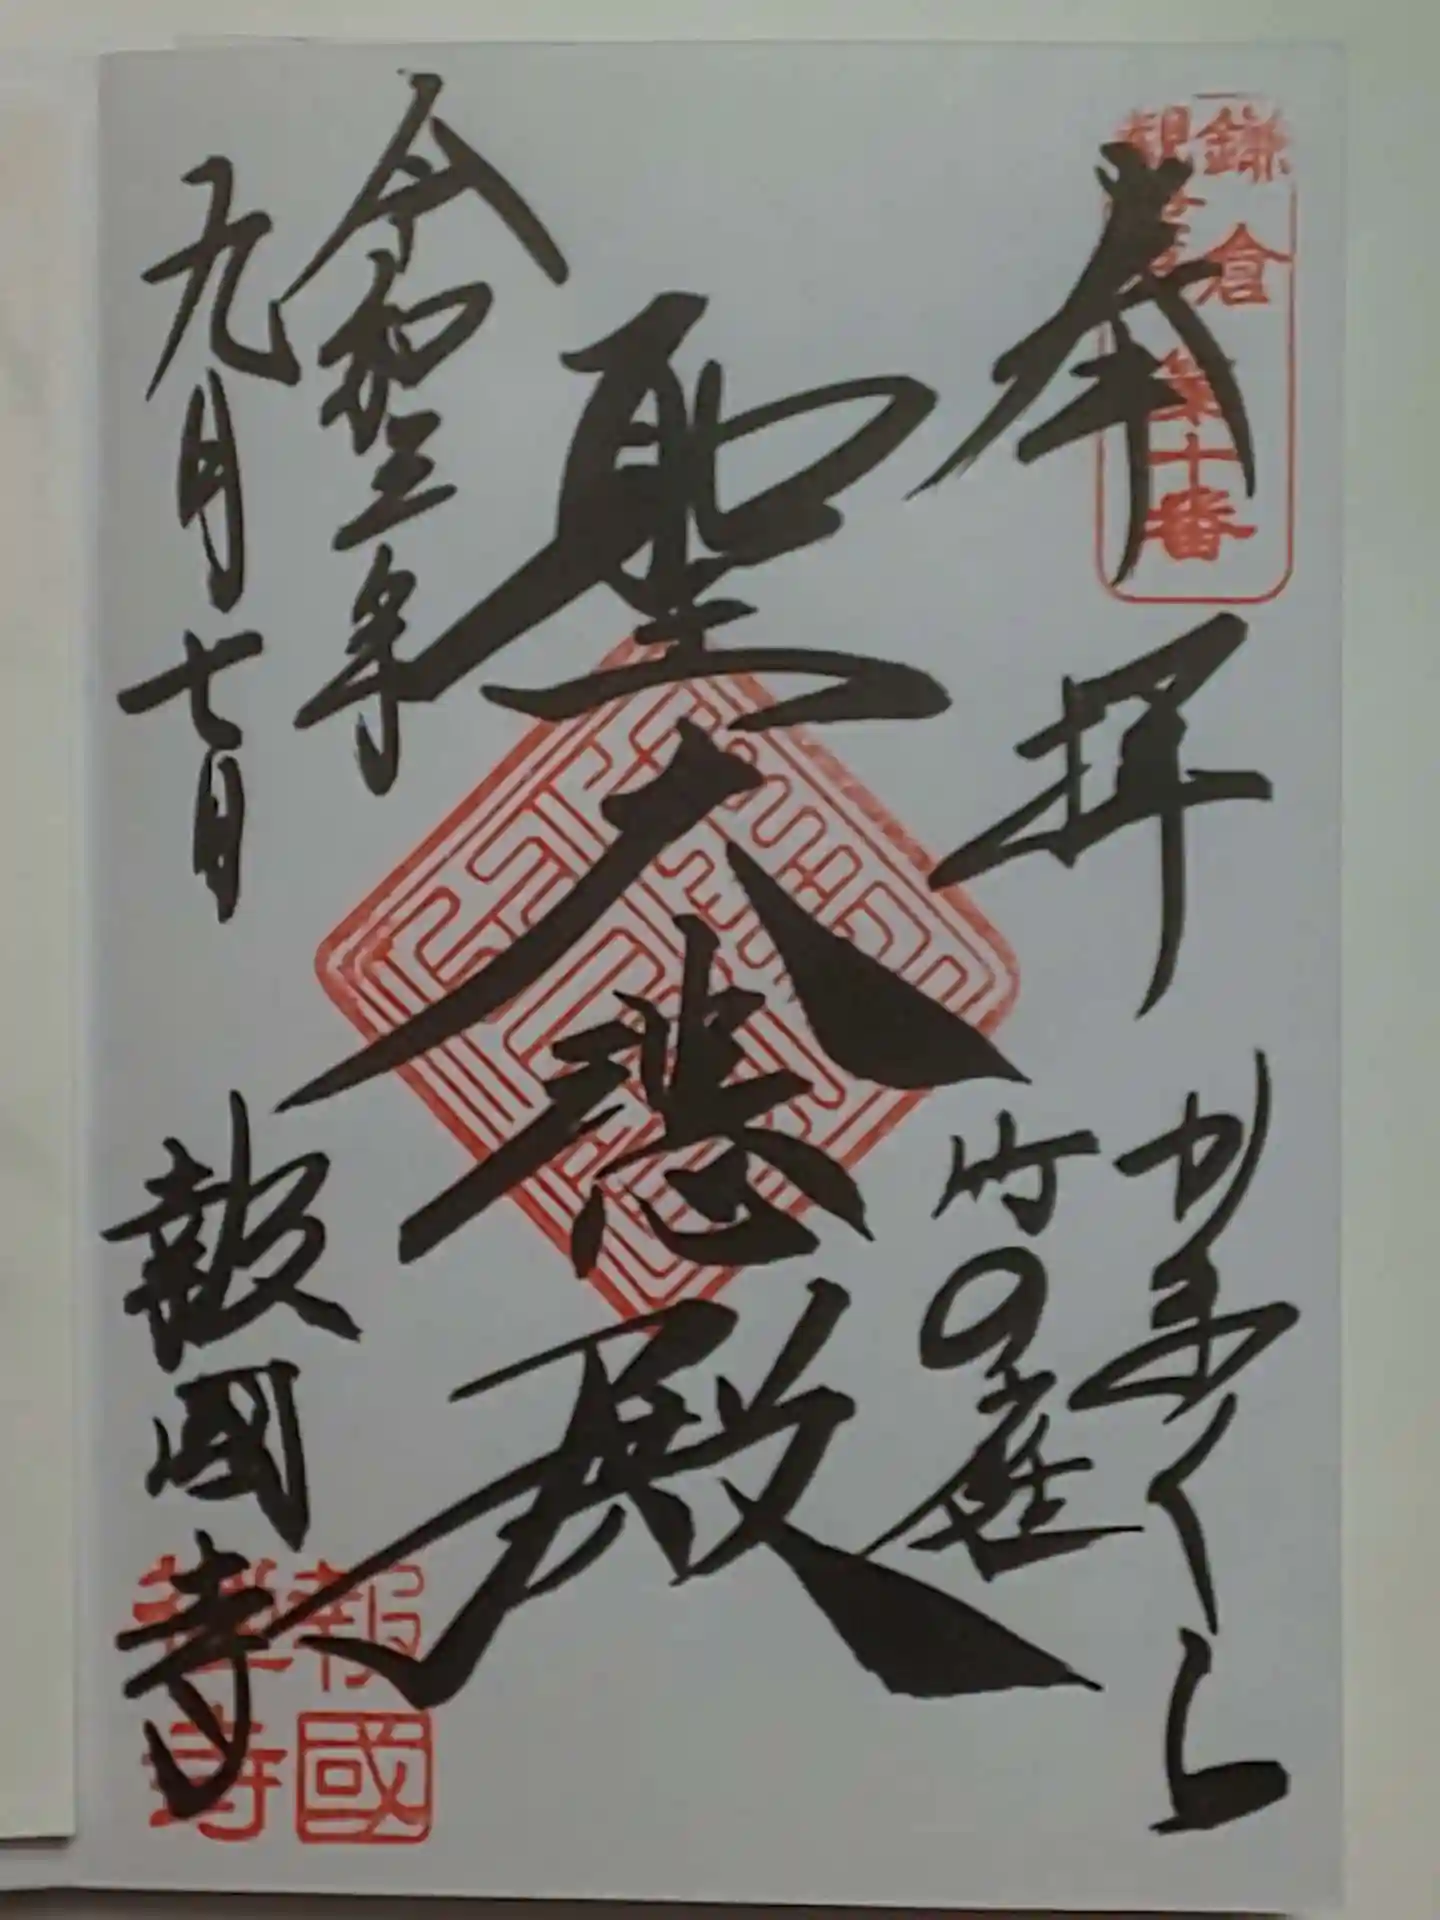 鎌倉
観音第十番
奉拝
かまくら
竹の庭
聖大悲殿
令和三年
九月七日
報國寺
報國
禅寺